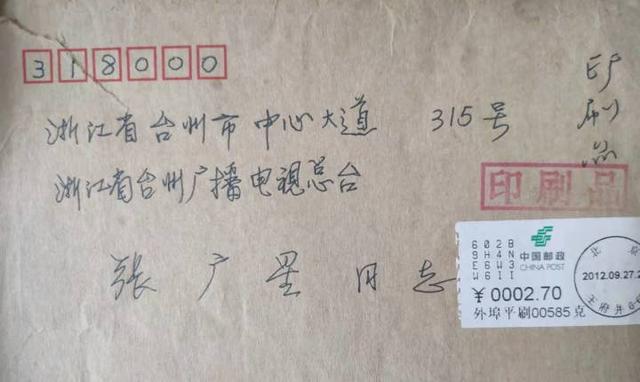 318000
浙江省台州市中心大道 315号
浙江省台州广播电视总台
张广星同志
印刷品
印刷品
602B
9H4N
E6W3
W6II
中国邮政
CHINA POST
¥0002.70
外埠平刷00585克
北京
2012.09.27.2
王府井